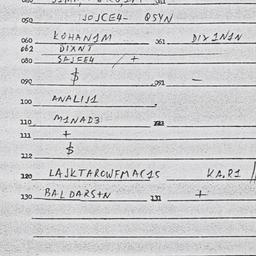 050 JOJCE4- QSYN
060 KOHAN1M 061 DIX1N1N
062 DIXNT
080 SAJEE4 / +
090 $ 091 -
100 ANALIJ1
110 M1NAD3
111 +
112 $
120 LAJKTAROWFMAC15 KA.R1
130 BALDARS+N 131 +